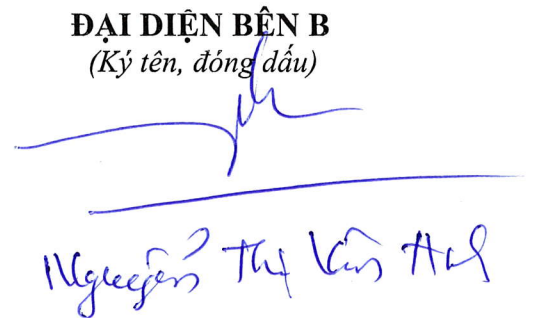 ĐẠI DIỆN BÊN B
(Ký tên, đóng dấu)
Nguyễn Thị Vân Anh